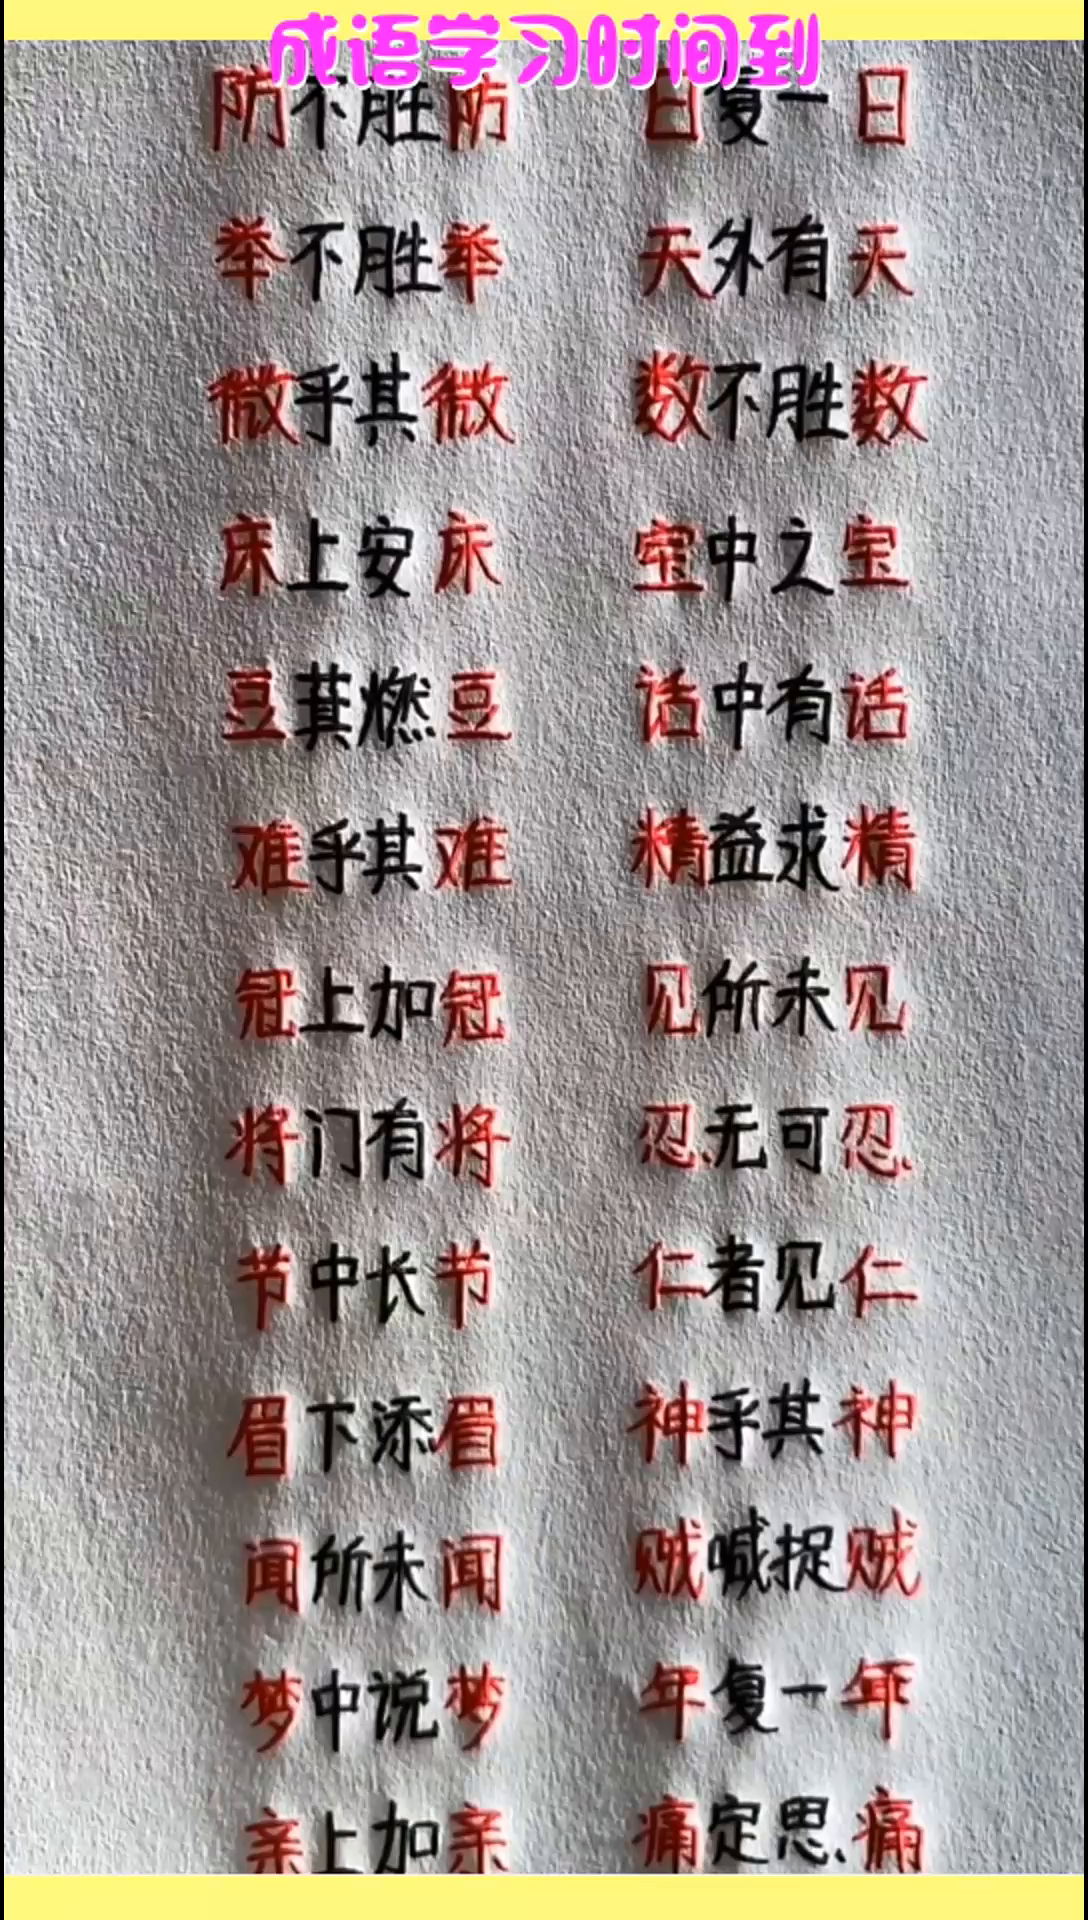 成语学习时间到
防不胜防 日复一日
举不胜举 天外有天
微乎其微 数不胜数
床上安床 宝中之宝
豆萁燃豆 话中有话
难乎其难 精益求精
冠上加冠 见所未见
将门有将 忍无可忍
节中长节 仁者见仁
眉下添眉 神乎其神
闻所未闻 贼喊捉贼
梦中说梦 年复一年
亲上加亲 痛定思痛